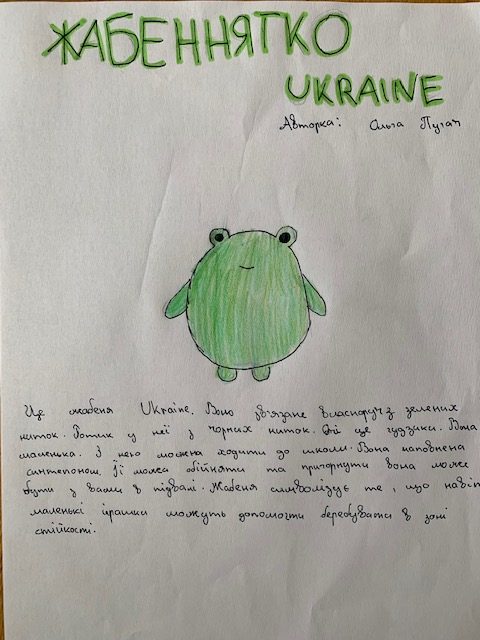 ЖАБЕННЯТКО
UKRAINE
Авторка: Ольга Пугач
Це жабеня Ukraine. Воно зв'язане власноруч з зелених
ниток. Ротик у неї з чорних ниток. Очі це гудзики. Вона
маленька. З нею можна ходити до школи. Вона наповнена
синтепоном. Її можна обійняти та пригорнути вона може
бути з вами в підвалі. Жабеня символізує те, що навіть
маленькі іграшки можуть допомогти перебувати в зоні
стійкості.